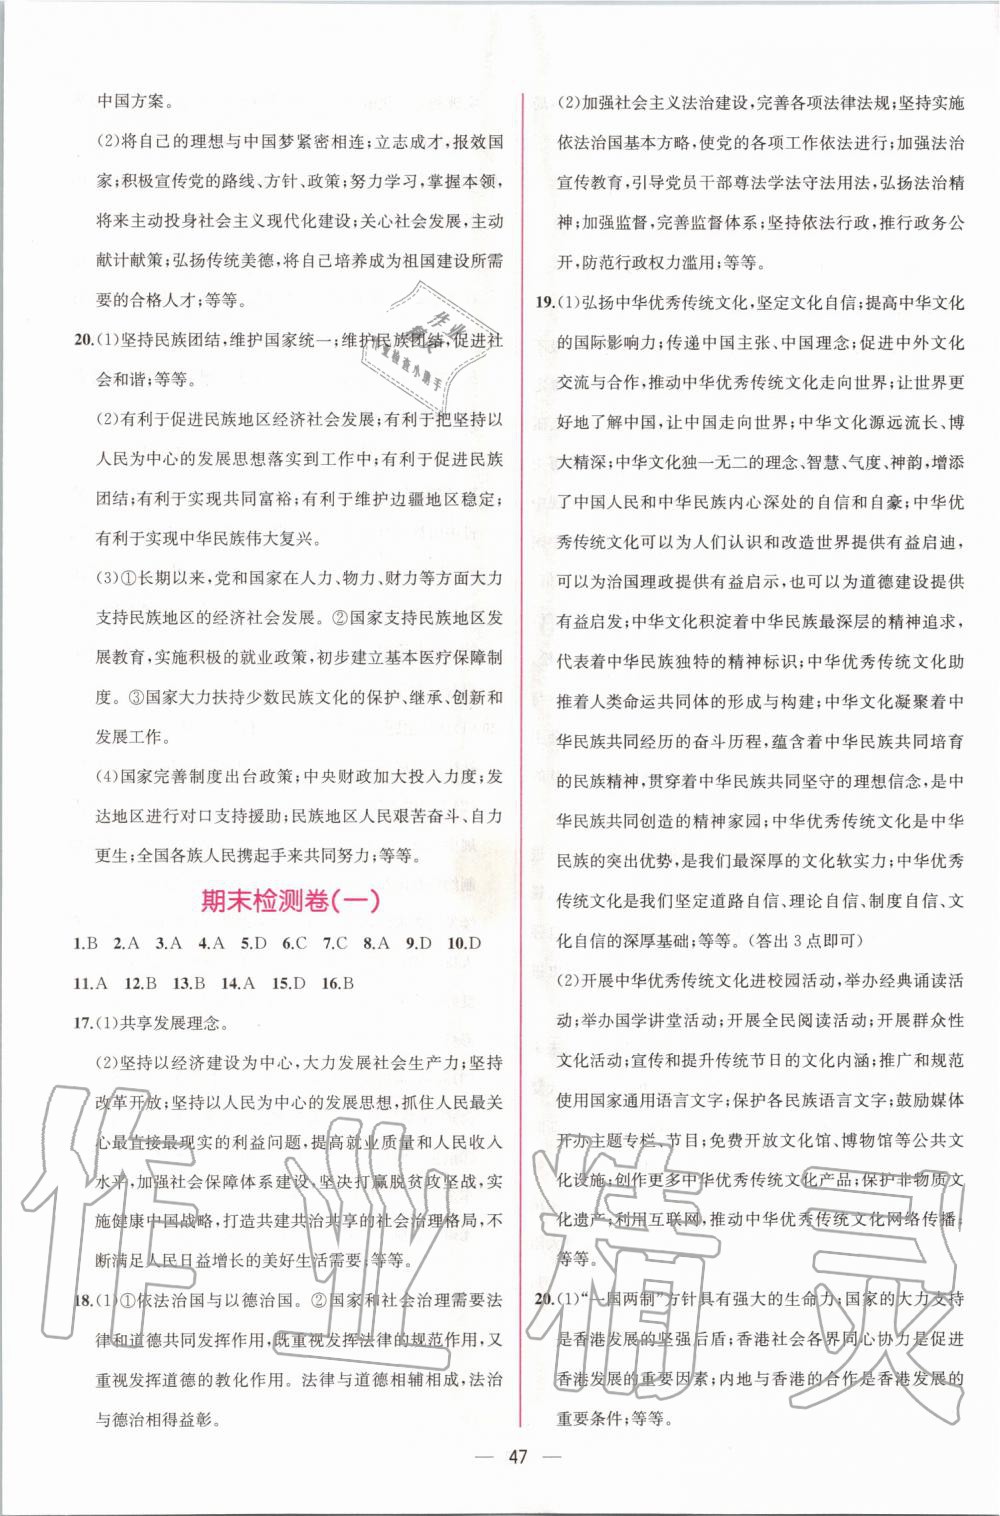 中国方案。
(2)将自己的理想与中国梦紧密相连;立志成才,报效国
家;积极宣传党的路线、方针、政策;努力学习,掌握本领,
将来主动投身社会主义现代化建设;关心社会发展,主动
献计献策;弘扬传统美德,将自己培养成为祖国建设所需
要的合格人才;等等。
20.(1)坚持民族团结,维护国家统一;维护民族团结,促进社
会和谐;等等。
(2)有利于促进民族地区经济社会发展;有利于把坚持以
人民为中心的发展思想落实到工作中;有利于促进民族
团结;有利于实现共同富裕;有利于维护边疆地区稳定;
有利于实现中华民族伟大复兴。
(3)①长期以来,党和国家在人力、物力、财力等方面大力
支持民族地区的经济社会发展。②国家支持民族地区发
展教育,实施积极的就业政策,初步建立基本医疗保障制
度。③国家大力扶持少数民族文化的保护、继承、创新和
发展工作。
(4)国家完善制度出台政策;中央财政加大投入力度;发
达地区进行对口支持援助;民族地区人民艰苦奋斗、自力
更生;全国各族人民携起手来共同努力;等等。
期末检测卷(一)
1.B 2.A 3.A 4.A 5.D 6.C 7.C 8.A 9.D 10.D
11.A 12.B 13.B 14.A 15.D 16.B
17.(1)共享发展理念。
(2)坚持以经济建设为中心,大力发展社会生产力;坚持
改革开放;坚持以人民为中心的发展思想,抓住人民最关
心最直接最现实的利益问题,提高就业质量和人民收入
水平,加强社会保障体系建设,坚决打赢脱贫攻坚战,实
施健康中国战略,打造共建共治共享的社会治理格局,不
断满足人民日益增长的美好生活需要;等等。
18.(1)①依法治国与以德治国。②国家和社会治理需要法
律和道德共同发挥作用,既重视发挥法律的规范作用,又
重视发挥道德的教化作用。法律与道德相辅相成,法治
与德治相得益彰。
(2)加强社会主义法治建设,完善各项法律法规;坚持实施
依法治国基本方略,使党的各项工作依法进行;加强法治
宣传教育,引导党员干部尊法学法守法用法,弘扬法治精
神;加强监督,完善监督体系;坚持依法行政,推行政务公
开,防范行政权力滥用;等等。
19.(1)弘扬中华优秀传统文化,坚定文化自信;提高中华文化
的国际影响力;传递中国主张、中国理念;促进中外文化
交流与合作,推动中华优秀传统文化走向世界;让世界更
好地了解中国,让中国走向世界;中华文化源远流长、博
大精深;中华文化独一无二的理念、智慧、气度、神韵,增添
了中国人民和中华民族内心深处的自信和自豪;中华优
秀传统文化可以为人们认识和改造世界提供有益启迪,
可以为治国理政提供有益启示,也可以为道德建设提供
有益启发;中华文化积淀着中华民族最深层的精神追求,
代表着中华民族独特的精神标识;中华优秀传统文化助
推着人类命运共同体的形成与构建;中华文化凝聚着中
华民族共同经历的奋斗历程,蕴含着中华民族共同培育
的民族精神,贯穿着中华民族共同坚守的理想信念,是中
华民族共同创造的精神家园;中华优秀传统文化是中华
民族的突出优势,是我们最深厚的文化软实力;中华优秀
传统文化是我们坚定道路自信、理论自信、制度自信、文
化自信的深厚基础;等等。(答出3点即可)
(2)开展中华优秀传统文化进校园活动,举办经典诵读活
动;举办国学讲堂活动;开展全民阅读活动;开展群众性
文化活动;宣传和提升传统节日的文化内涵;推广和规范
使用国家通用语言文字;保护各民族语言文字;鼓励媒体
开办主题专栏、节目;免费开放文化馆、博物馆等公共文
化设施;创作更多中华优秀传统文化产品;保护非物质文
化遗产;利用互联网,推动中华优秀传统文化网络传播;
等等。
20.(1)“一国两制”方针具有强大的生命力;国家的大力支持
是香港发展的坚强后盾;香港社会各界同心协力是促进
香港发展的重要因素;内地与香港的合作是香港发展的
重要条件;等等。
47
作业精灵